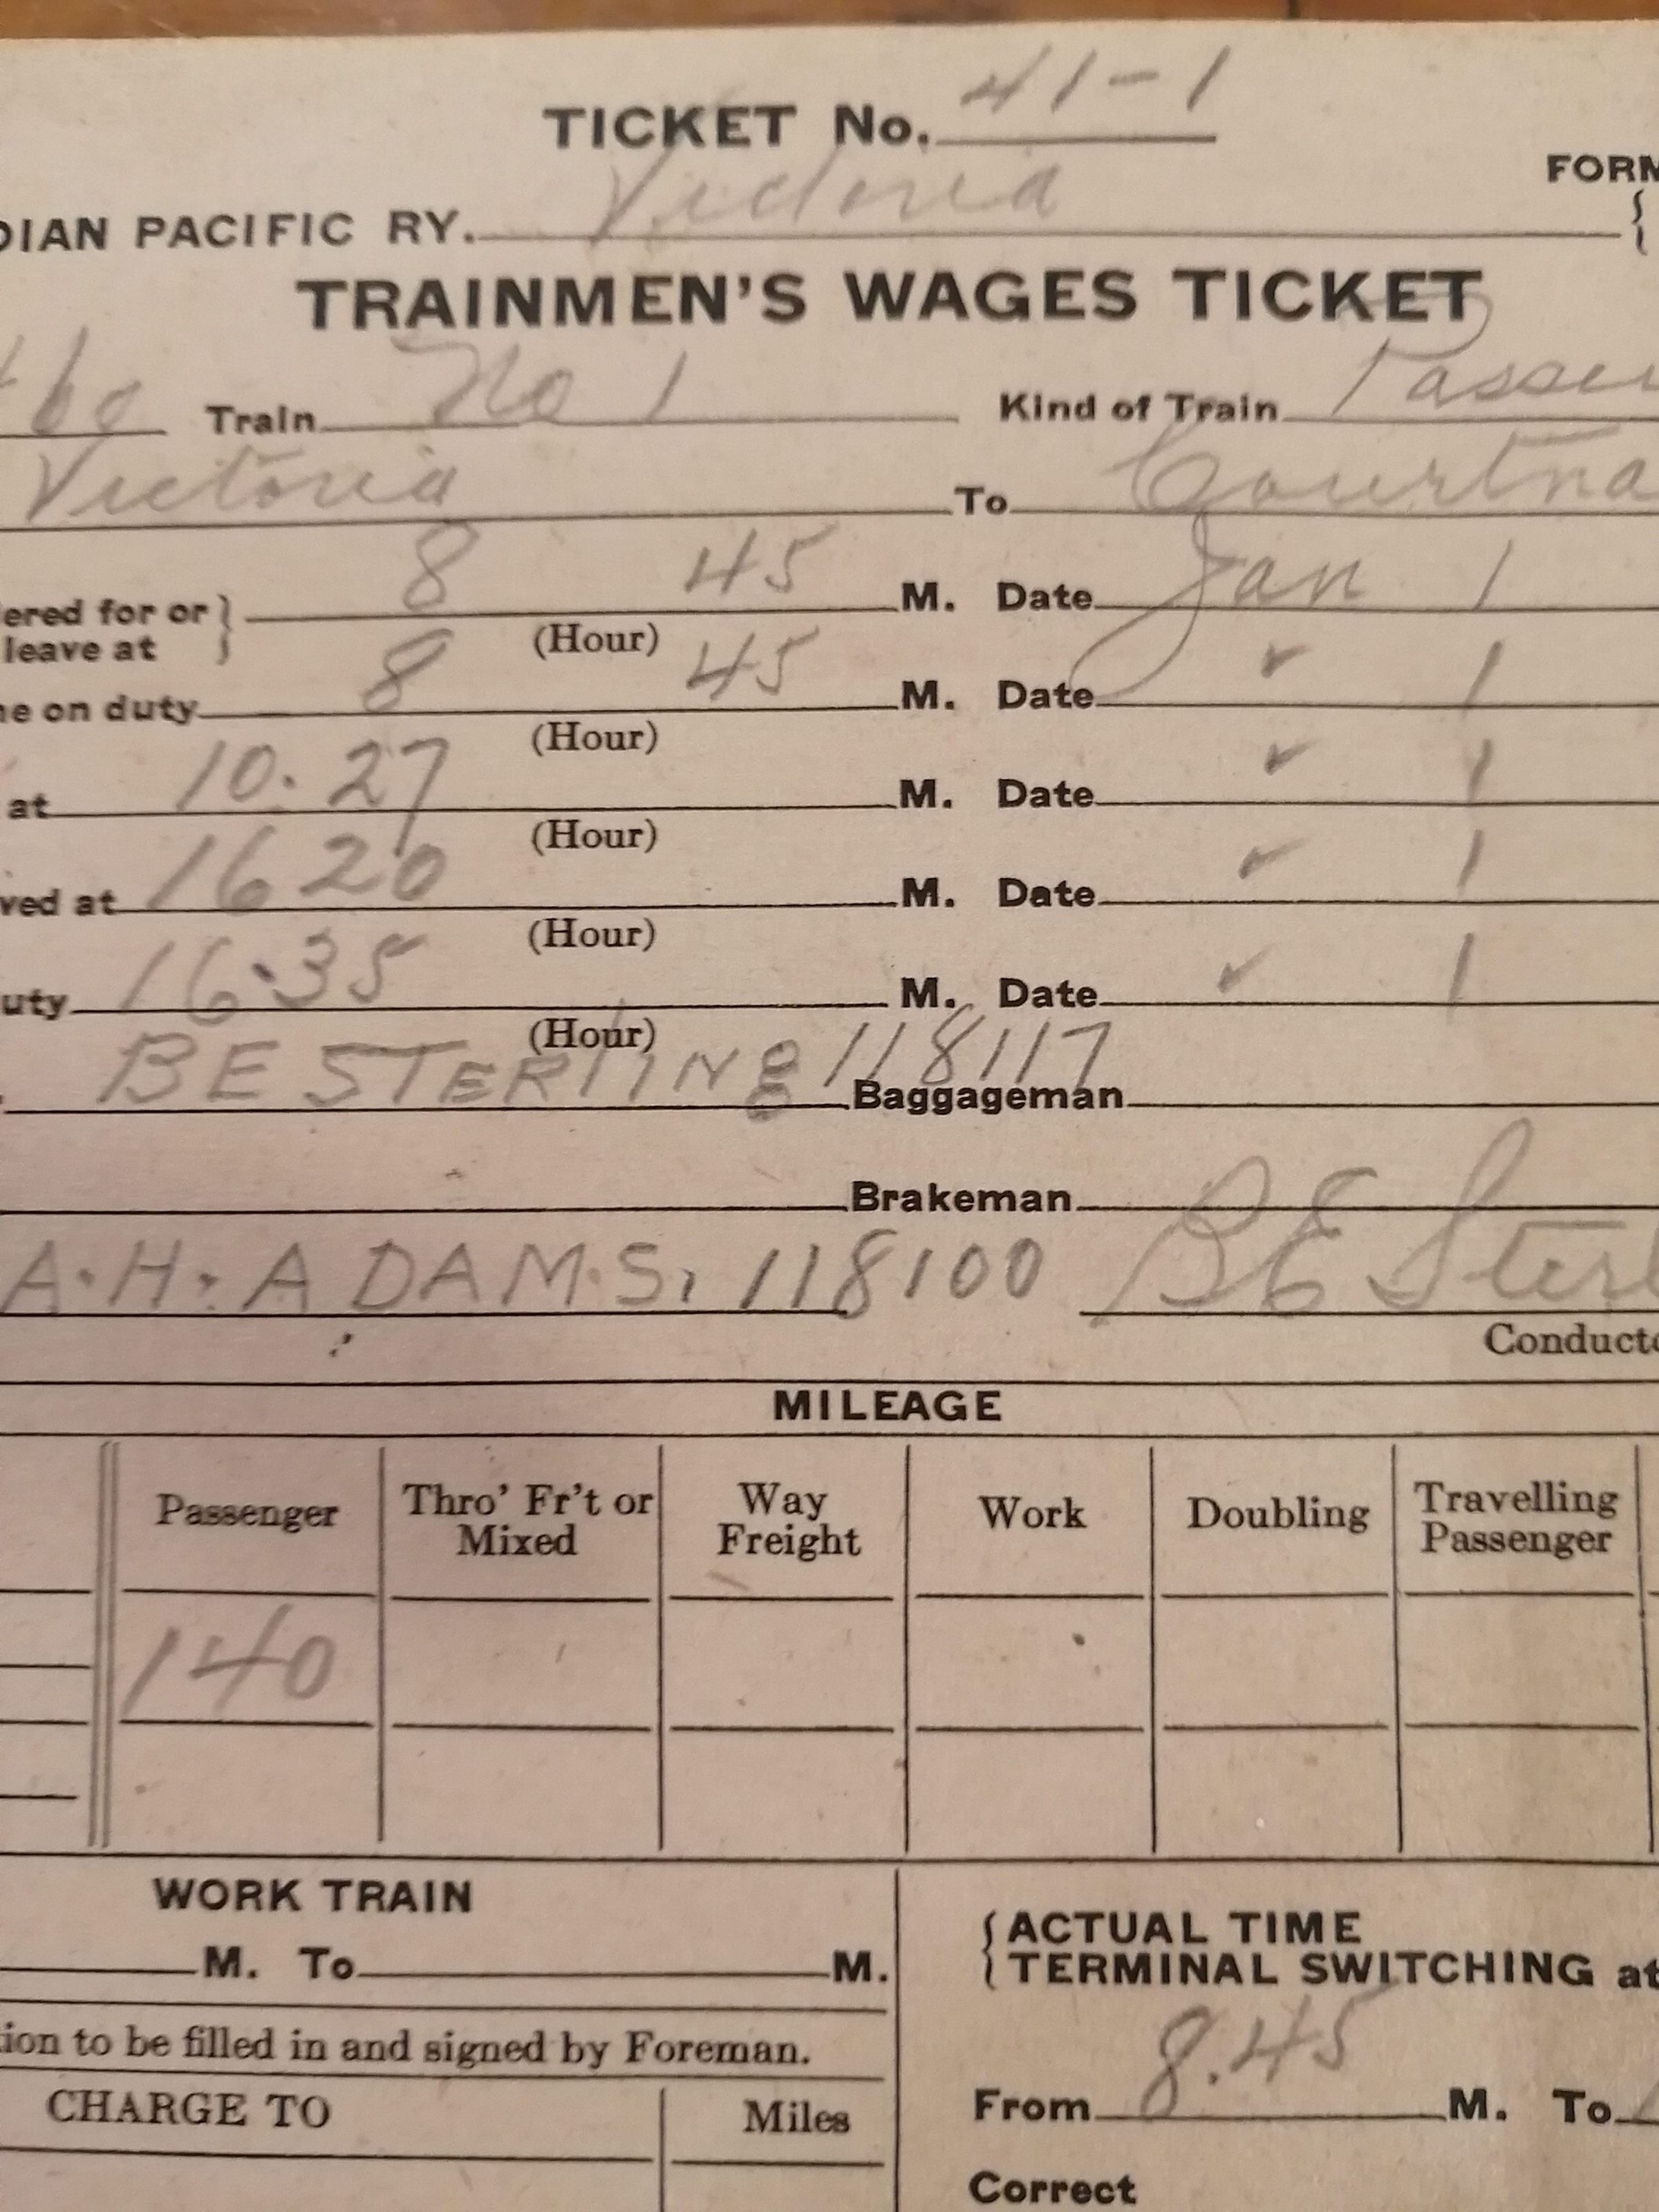 TICKET No. 41-1
FORM
DIAN PACIFIC RY. Victoria
TRAINMEN'S WAGES TICKET
Train No 1 Kind of Train Passen
Victoria To Courtna
ered for or leave at 8 45 M. Date Jan 1
(Hour)
e on duty 8 45 M. Date ✓ 1
(Hour)
at 10.27 M. Date ✓ 1
(Hour)
ved at 1620 M. Date ✓ 1
(Hour)
uty 16.35 M. Date ✓ 1
(Hour)
BE STERLING 118117 Baggageman
Brakeman
A.H. ADAMS. 118100 BE Sterl
Conducto
MILEAGE
Passenger Thro' Fr't or Mixed Way Freight Work Doubling Travelling Passenger
140
WORK TRAIN
M. To M.
ACTUAL TIME
TERMINAL SWITCHING at
tion to be filled in and signed by Foreman.
8.45
CHARGE TO Miles From M. To
Correct